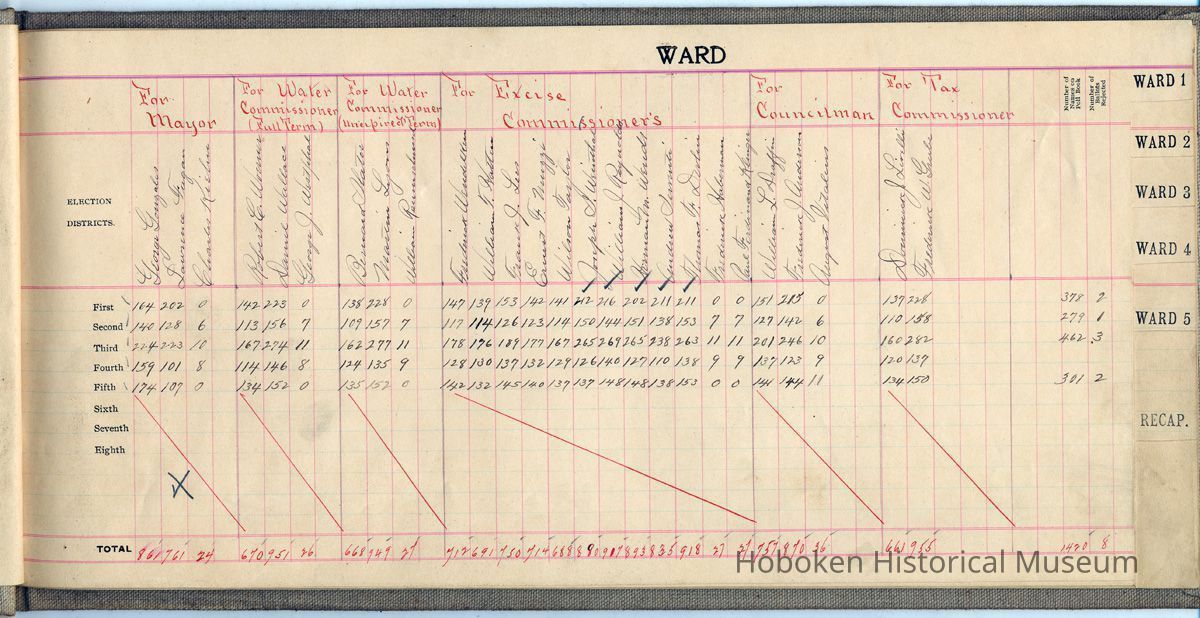 WARD
For Mayor
For Water Commissioner (Full Term)
For Water Commissioner (Unexpired Term)
For Excise Commissioner's
For Councilman
For Tax Commissioner
Number of Names on Poll Book
Number of Ballots Rejected
ELECTION DISTRICTS.
George Gonzales
Lawrence Fagan
Charles
Robert C.
Daniel Wallace
George J.
Bernard
Lyons
William
Frederick
William F.
Frank J. Lee
Ernest F.
Wilson Taylor
Joseph S.
William J. Reynolds
Herman
Thomas F.
Frederick
Paul Ferdinand
William L. Duffy
Frederick J. Anderson
August
J.
Frederick W.
First 164 202 0 142 223 0 138 228 0 147 139 153 142 141 212 216 202 211 211 0 0 151 215 0 137 228 378 2
Second 140 128 6 113 156 7 109 157 7 117 114 126 123 114 150 144 151 138 153 7 7 127 142 6 110 158 279 1
Third 224 223 10 167 274 11 162 277 11 178 176 189 177 167 265 269 265 238 263 11 11 201 246 10 160 282 462 3
Fourth 159 101 8 114 146 8 124 135 9 128 130 137 132 129 126 140 127 110 138 9 9 137 123 9 120 137
Fifth 174 107 0 134 152 0 135 152 0 142 132 145 140 137 137 148 148 138 153 0 0 141 144 11 134 150 301 2
Sixth
Seventh
Eighth
TOTAL 861 761 24 670 951 26 668 949 27 712 691 750 714 688 890 917 893 835 918 27 27 757 870 36 661 955 1420 8
WARD 1
WARD 2
WARD 3
WARD 4
WARD 5
RECAP.
Hoboken Historical Museum